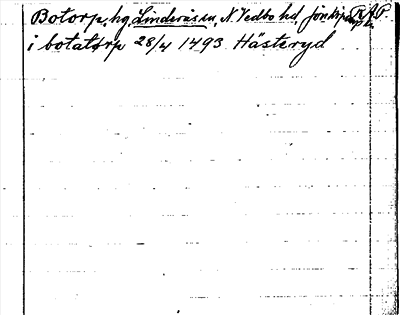 Botorp, hg, Linderås sn, N. Vedbo hd, Jönk. RAP.
i botatorp 28/4 1493 Hästeryd